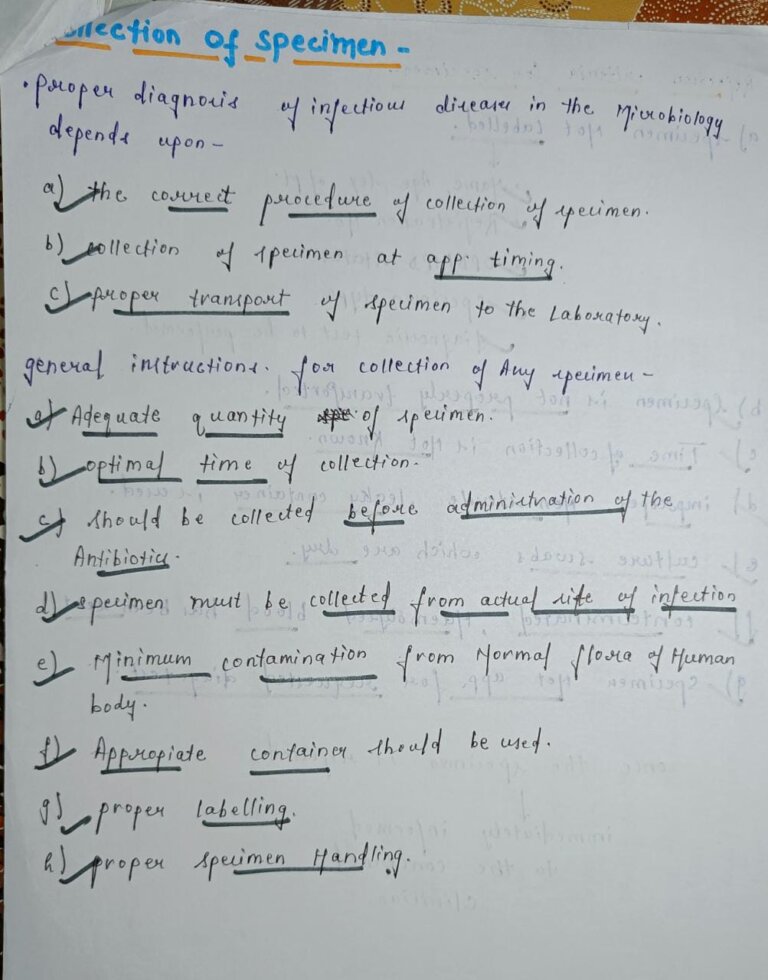 Collection of specimen -
• proper diagnosis of infectious diseases in the Microbiology
depends upon -
a) the correct procedure of collection of specimen.
b) collection of specimen at app. timing.
c) proper transport of specimen to the Laboratory.
general instructions. for collection of Any specimen -
a) Adequate quantity of specimen.
b) optimal time of collection.
c) should be collected before administration of the
Antibiotics.
d) specimen must be collected from actual site of infection
e) Minimum contamination from Normal flora of Human
body.
f) Appropiate container should be used.
g) proper labelling.
h) proper specimen Handling.